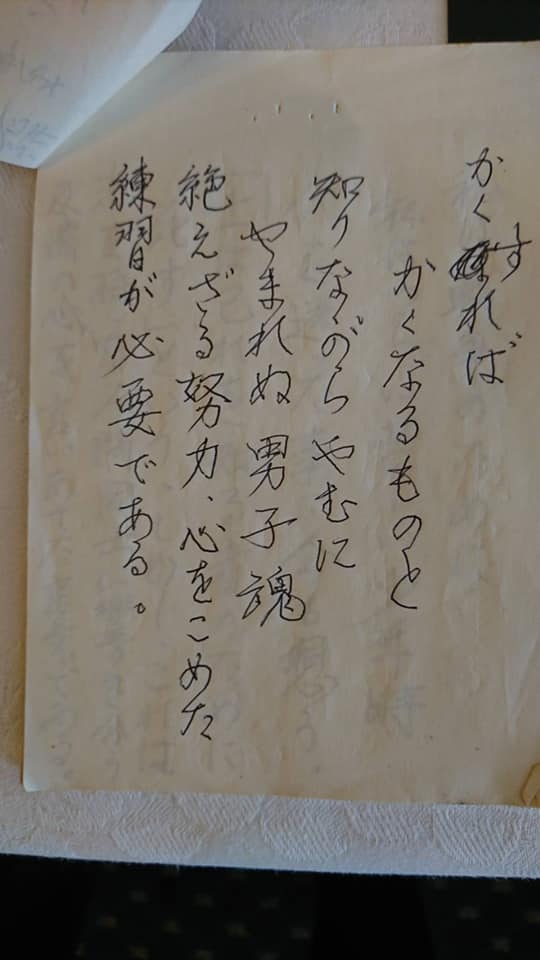 かくすれば
かくなるものと
知りながらやむに
やまれぬ男子魂
絶えざる努力、心をこめた
練習が必要である。